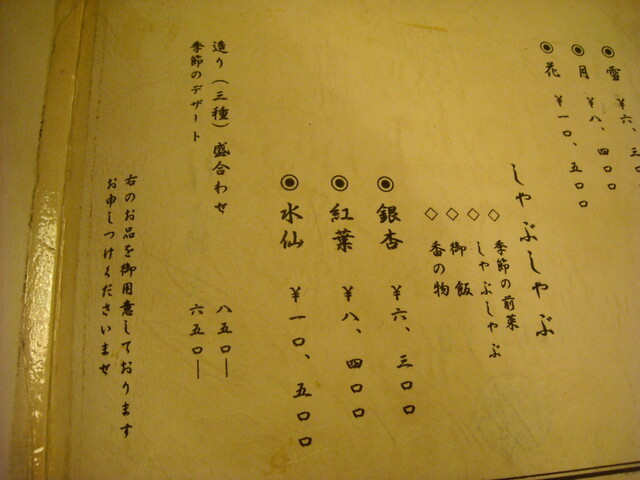 ◉雪 ￥六、三〇
◉月 ￥八、四〇〇
◉花 ￥一〇、五〇〇
しゃぶしゃぶ
◇季節の前菜
◇しゃぶしゃぶ
◇御飯
◇香の物
◉銀杏 ￥六、三〇〇
◉紅葉 ￥八、四〇〇
◉水仙 ￥一〇、五〇〇
造り(三種)盛合わせ 八五〇ー
季節のデザート 六五〇ー
右のお品を御用意しております
お申しつけくださいませ